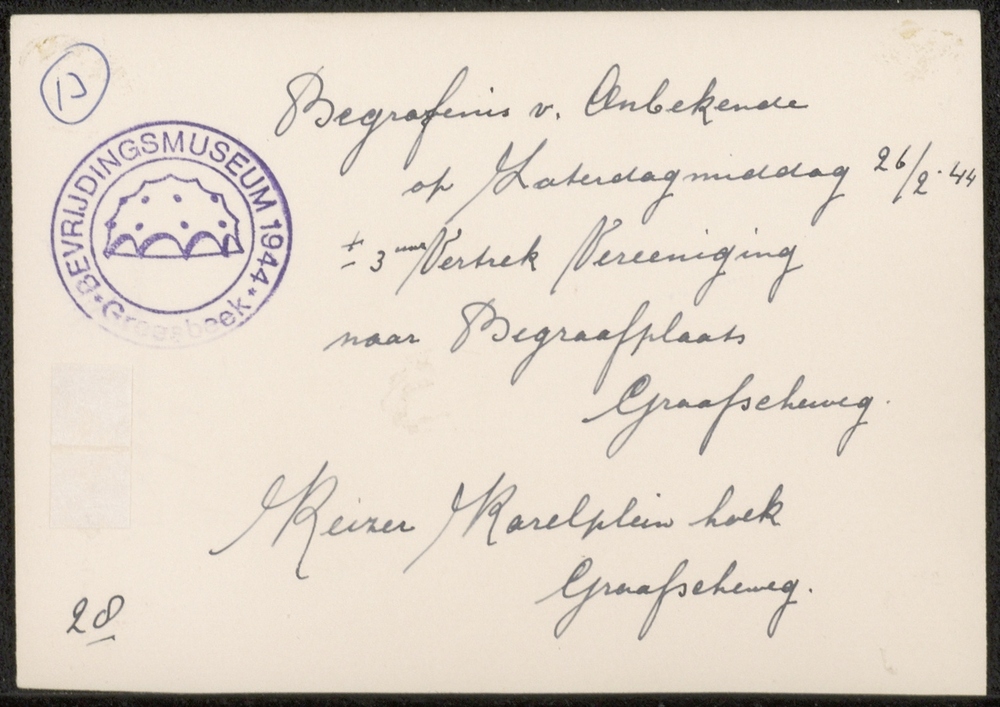 B
BEVRIJDINGSMUSEUM 1944
Groesbeek
Begrafenis v. Onbekende
op Zaterdagmiddag 26/2-44
± 3 uur Vertrek Vereeniging
naar Begraafplaats
Graafscheweg.
Keizer Karelplein hoek
Graafscheweg.
28